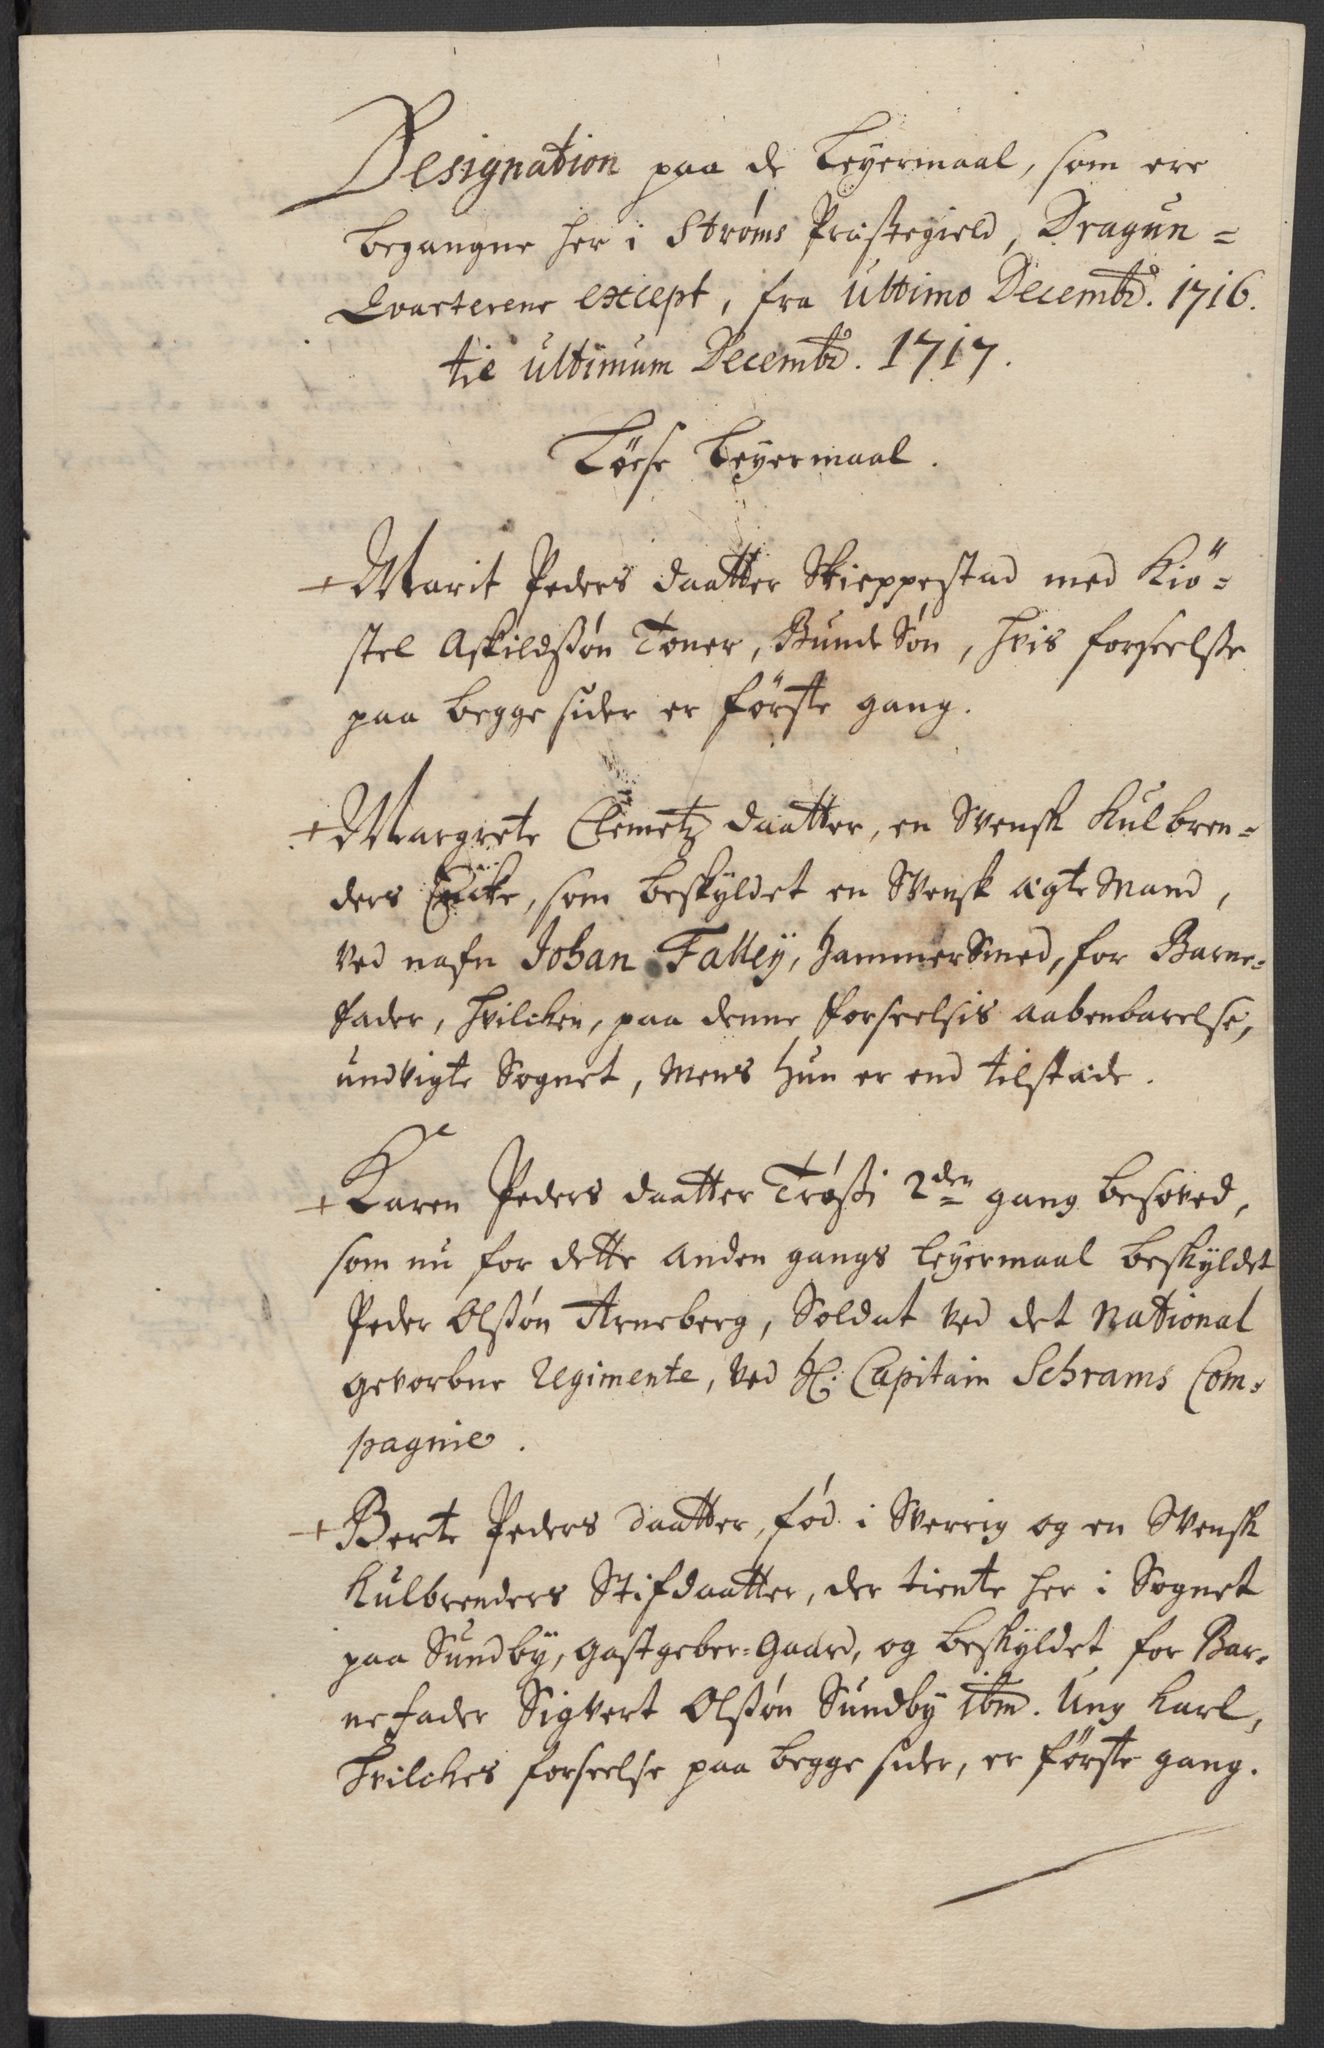 Designation paa de Leyermaal, som ere
begangne her i Strøms Præstegield, Dragun=
Qvarterene except, fra Ultimo Decembr. 1716.
til ultimum Decembr. 1717.
Løese Leyermaal.
+ Marit Peders daatter Skieppestad med Kiö=
stel Askildsøn Toner, BundeSøn, hvis forseelse
paa begge sider er förste gang.
+ Margrete Clemetz daatter, en Svensk Kulbren=
ders Encke, som beskyldet en Svensk ægte Mand,
ved nafn Johan Falleÿ, HammerSmed, for Barne=
fader, hvilcken, paa denne forseelsis aabenbarelse,
undvigte Sognet, Mens hun er end tilstæde.
+ Karen Peders daatter Trøssi 2den gang besoved,
som nu for dette anden gangs Leyermaal beskyldet
Peder Olssøn Arneberg, Soldat ved det National
gevorbne Regimente, ved H: Capitain Schrams Com=
pagnie.
+ Berte Peders daatter, fød i Sverrig og en Svensk
Kulbrenders Stifdaatter, der tiente her i Sognet
paa Sundbÿ, gastgeber=Gaard, og beskyldet for Bar=
nefader Sigvert Olssøn Sundby ibm. Ung Karl,
hvilckes forseelse paa begge sider, er förste gang.